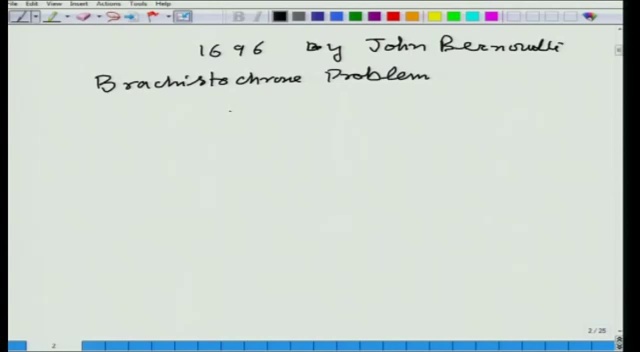 File Edit View Insert Actions Tools Help
1696 By John Bernoulli
Brachistochrone Problem
2 / 25
2